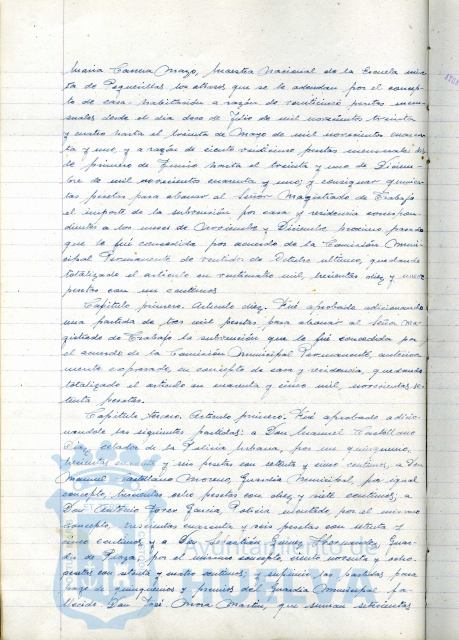 Maria Canena Mazo, Maestra Nacional de la Escuela mix-
ta de Peguerillas los atrasos que se le adeudan por el concep-
to de casa-habitación a razón de veinticinco pesetas men-
suales desde el dia doce de Julio de mil novecientos treinta
y cuatro hasta el treinta de Mayo de mil novecientos cuaren-
ta y uno, y a razón de ciento veinticinco pesetas mensuales des-
de primero de Junio hasta el treinta y uno de Diciem-
bre de mil novecientos cuarenta y uno; y consignar quinien-
tas pesetas para abonar al Señor Magistrado de Trabajo
el importe de la subvención por casa y residencia correspon-
dientes a los meses de Noviembre y Diciembre proximo pasado
que le fué concedida por acuerdo de la Comisión Muni-
cipal Permanente de veintidos de Octubre ultimo, quedando
totalizado el articulo en veinticuatro mil, trescientas diez y nueve
pesetas con un centimos
Capitulo primero. Articulo diez. Fué aprobado adicionando
una partida de tres mil pesetas, para abonar al Señor Ma-
gistrado de Trabajo la subvención que le fué concedida por
el acuerdo de la Comisión Municipal Permanente, anterior-
mente expresado, en concepto de casa y residencia, quedando
totalizado el articulo en cuarenta y cinco mil, novecientas se-
tenta pesetas.
Capitulo tercero. Articulo primero. Fué aprobado adicio-
nandole las siguientes partidas: a Don Manuel Castellano
Diaz, celador de la Policia Urbana, por un quinquenio,
trescientas cuarenta y seis pesetas con setenta y cinco centimos; a Don
Manuel Castellano Moreno, Guardia Municipal, por igual
concepto, trescientas ocho pesetas con diez y siete centimos; a
Don Antonio Garcia, Policia montado, por el mismo
concepto, trescientas cuarenta y seis pesetas con setenta y
cinco centimos; y a Don Sebastián Gomez Hernandez, Guar-
dia de Plaza, por el mismo concepto ciento noventa y ocho
pesetas con setenta y cuatro centimos; y suprimir las partidas para
pago de quinquenios y premios del Guardia Municipal fa-
llecido Don José Mora Martin, que suman setecientas
Ayuntamiento de
HUELVA